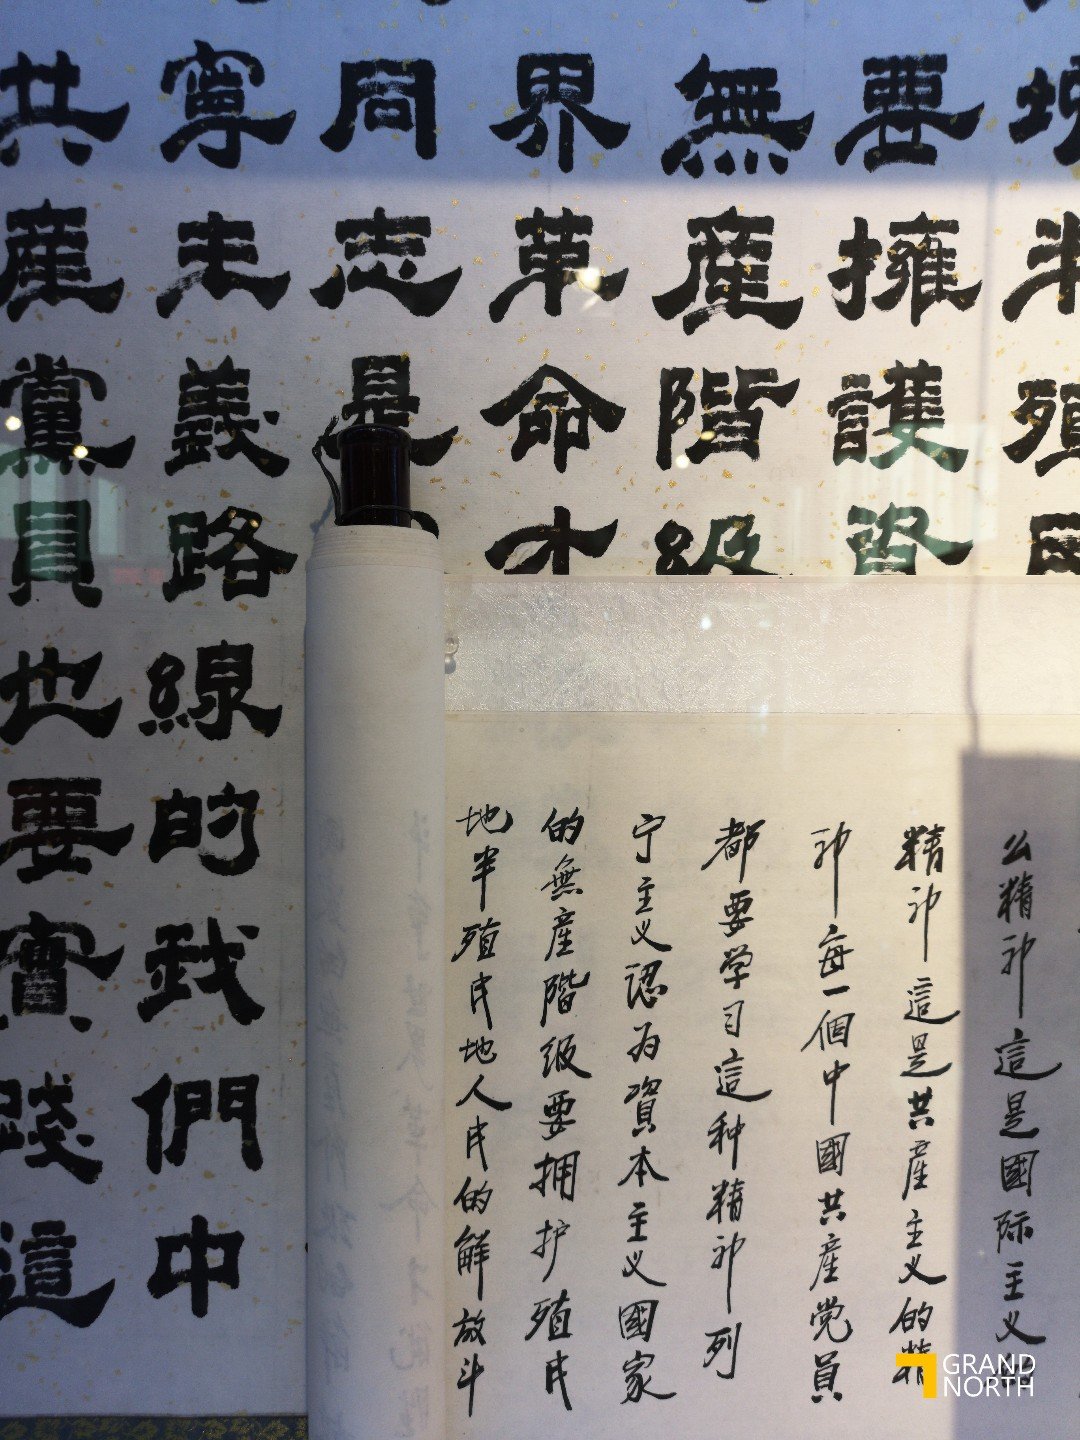 地半殖民
要擁護資
無產階級
界革命才
同志是
寧主義路線的我們中
共產黨員也要實踐這
么精神這是國际主义
精神這是共產主义的精
神每一個中國共產党員
都要学习這种精神列
宁主义認为資本主义國家
的無產階级要拥护殖民
地半殖民地人民的解放斗
GRAND
NORTH